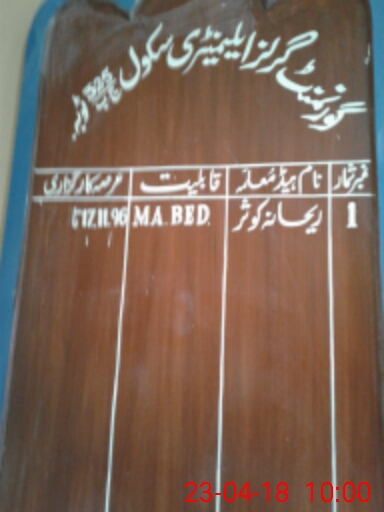 گورنمنٹ گرلز ایلیمنٹری سکول
نمبر شمار نام ہیڈ معلمہ قابلیت عرصہ کارگزاری
1 ریحانہ کوثر M.A. BED. 17.11.96
23-04-18 10:00